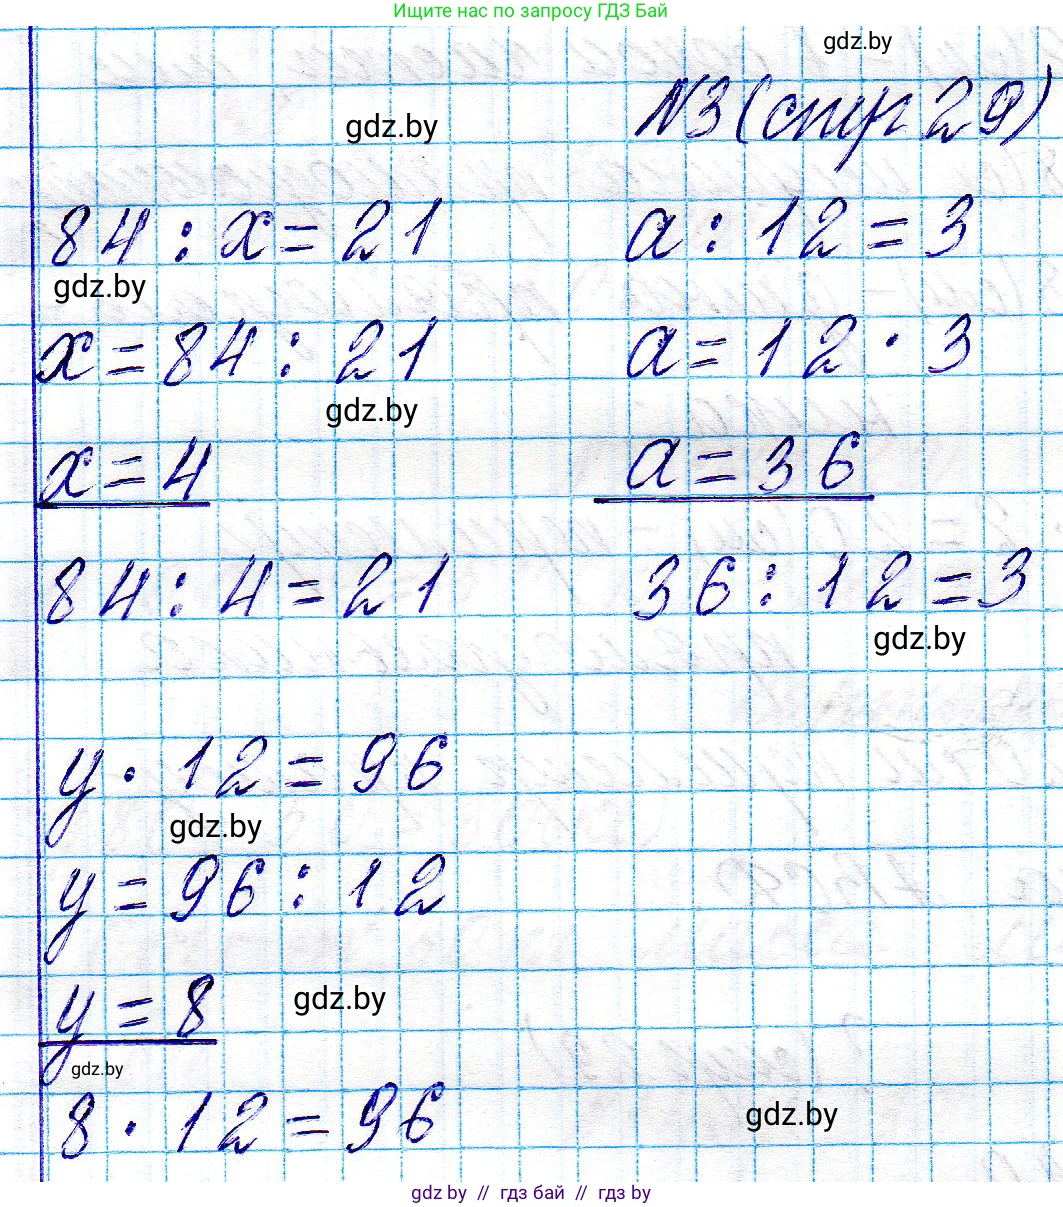 Ищите нас по запросу ГДЗ Бай
gdz.by
№3 (стр 29)
gdz.by
84 : x = 21    a : 12 = 3
gdz.by
x = 84 : 21    a = 12 · 3
gdz.by
x = 4    a = 36
84 : 4 = 21    36 : 12 = 3
gdz.by
y · 12 = 96
gdz.by
y = 96 : 12
y = 8
gdz.by
gdz.by
8 · 12 = 96
gdz.by
gdz by // гдз бай // гдз by